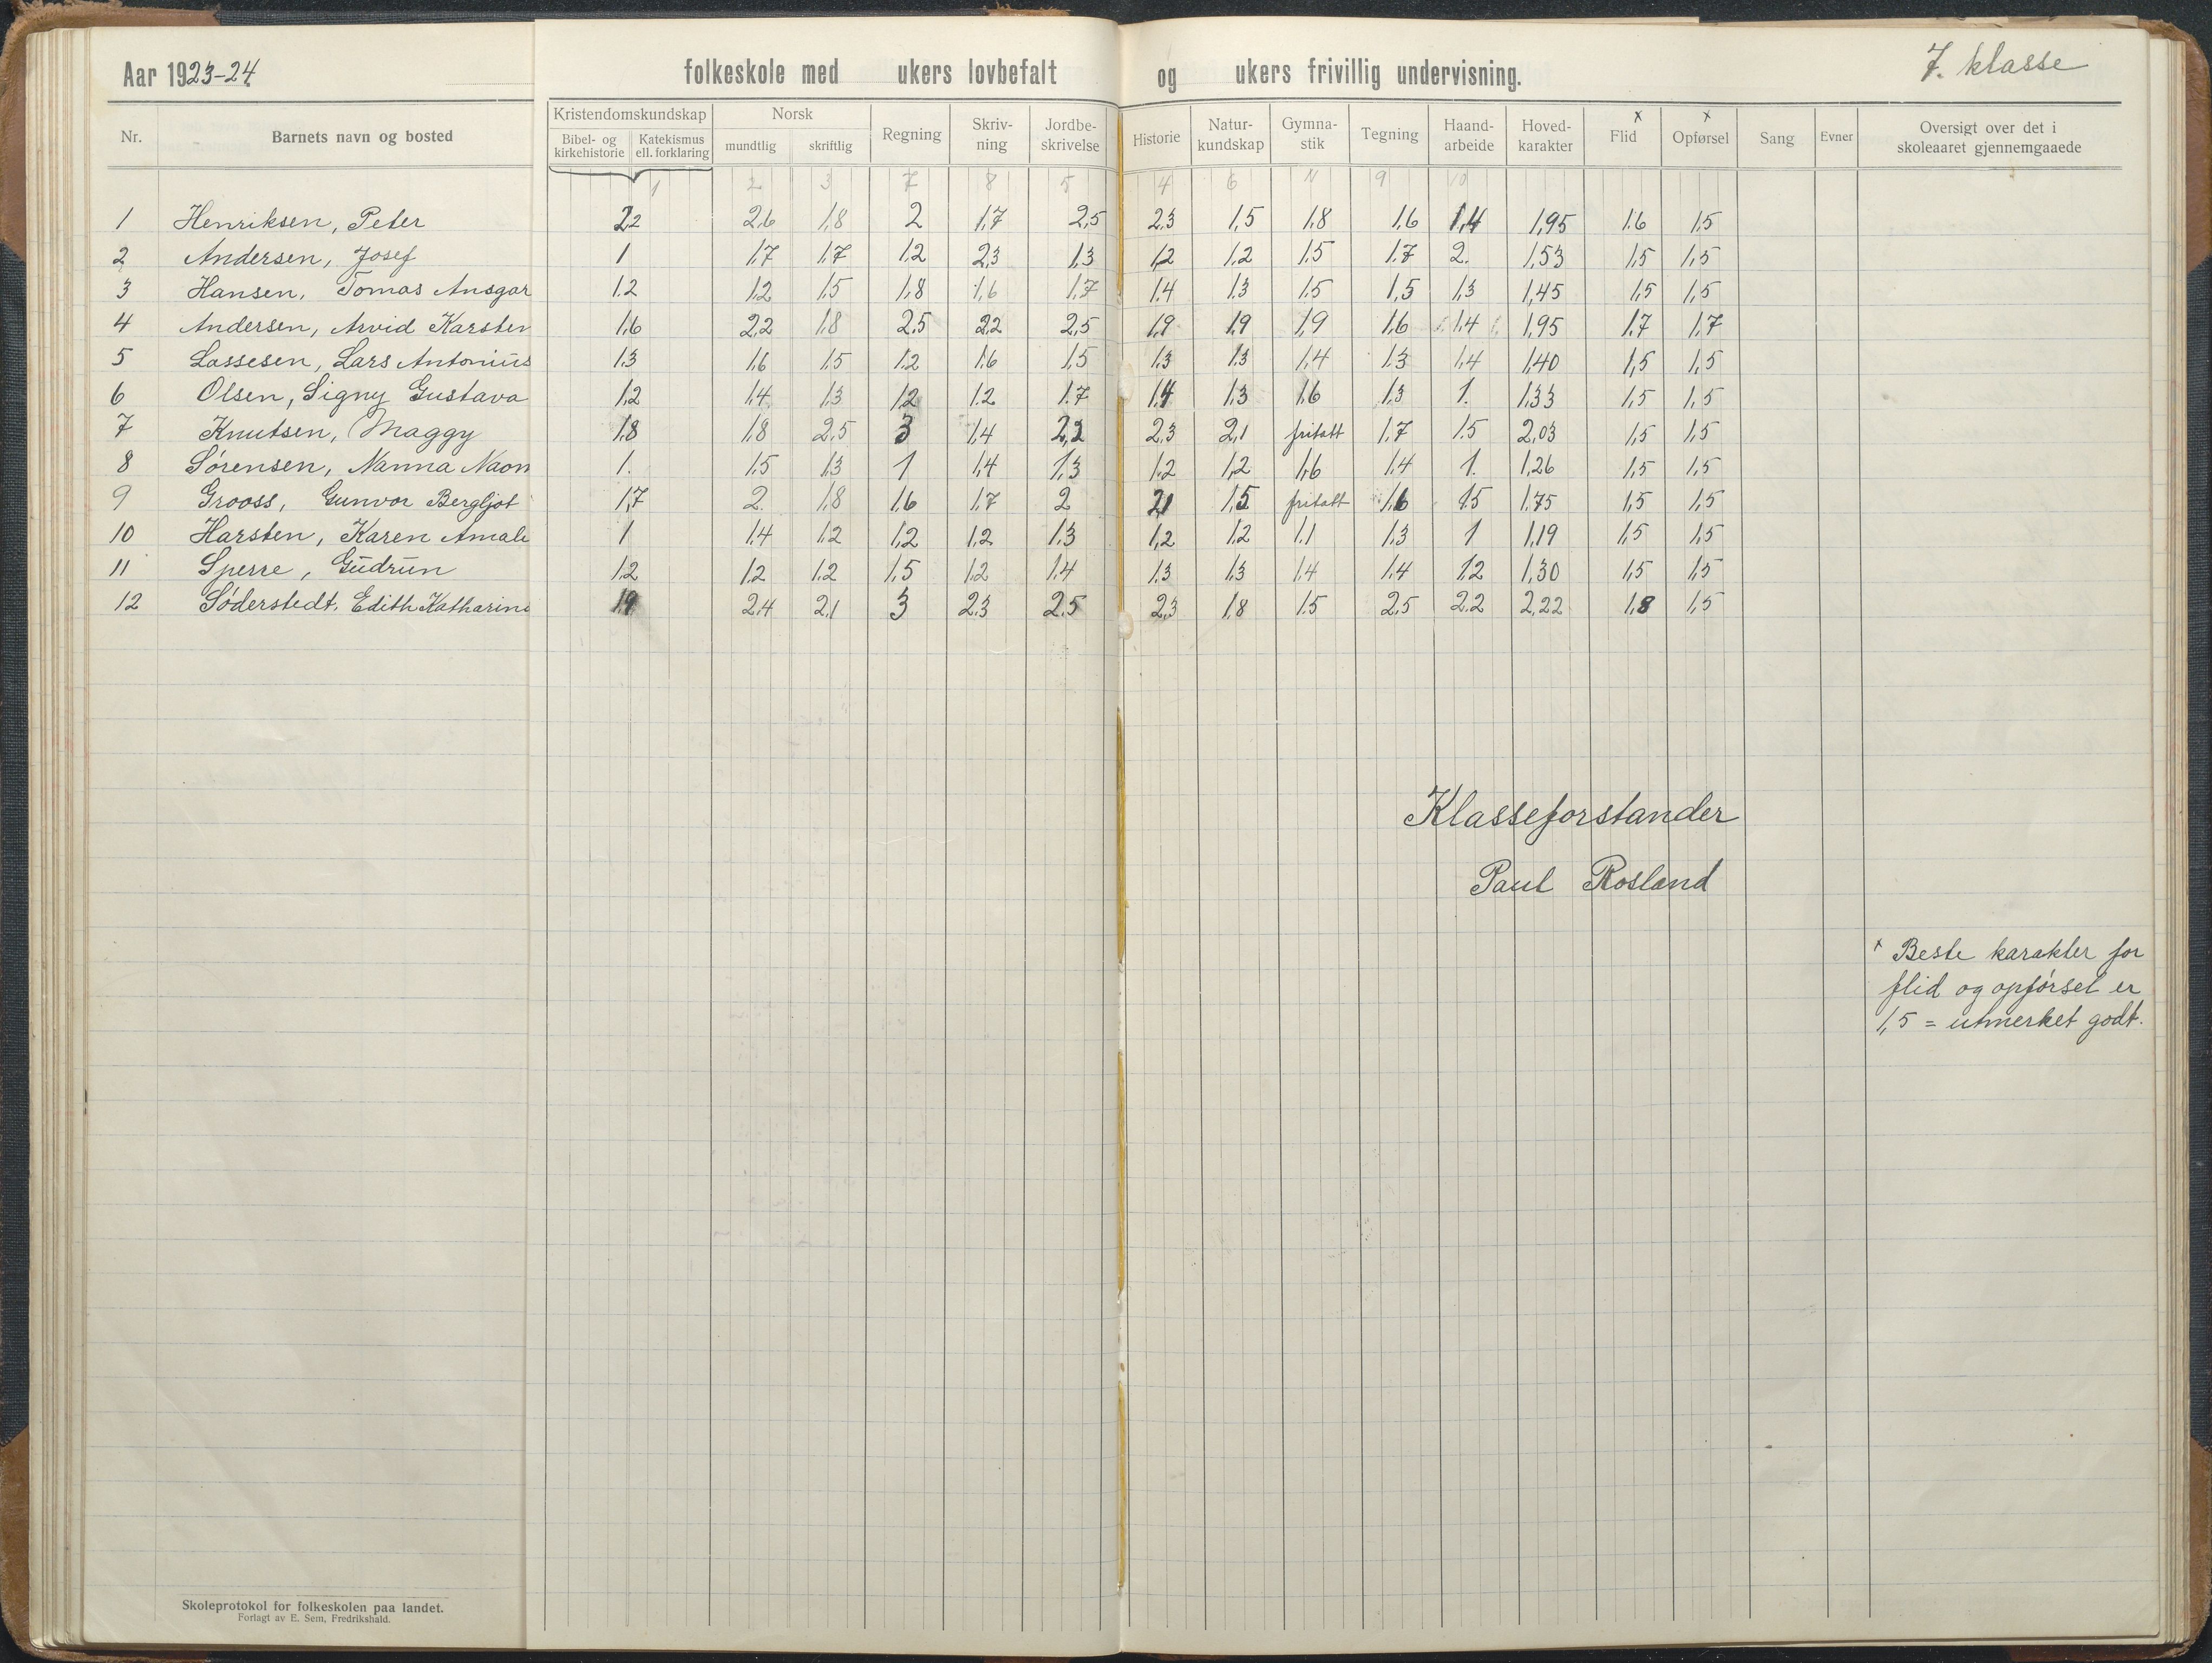 Aar 1923-24. folkeskole med ukers lovbefalt og ukers frivillig undervisning. 7. klasse
Nr. Barnets navn og bosted Kristendomskundskap Norsk Regning Skriv-ning Jordbe-skrivelse Historie Natur-kundskap Gymna-stik Tegning Haand-arbeide Hoved-karakter Flid x Opførsel x Sang Evner Oversigt over det i skoleaaret gjennemgaaede
Bibel- og kirkehistorie Katekismus ell. forklaring mundtlig skriftlig
1 2 3 7 8 5 4 6 11 9 10
1 Henriksen, Peter 2,2 2,6 1,8 2 1,7 2,5 2,3 1,5 1,8 1,6 1,4 1,95 1,6 1,5
2 Andersen, Josef 1 1,7 1,7 1,2 2,3 1,3 1,2 1,2 1,5 1,7 2. 1,53 1,5 1,5
3 Hansen, Tomas Ansgar 1,2 1,2 1,5 1,8 1,6 1,7 1,4 1,3 1,5 1,5 1,3 1,45 1,5 1,5
4 Andersen, Arvid Karsten 1,6 2,2 1,8 2,5 2,2 2,5 1,9 1,9 1,9 1,6 1,4 1,95 1,7 1,7
5 Lassesen, Lars Antonius 1,3 1,6 1,5 1,2 1,6 1,5 1,3 1,3 1,4 1,3 1,4 1,40 1,5 1,5
6 Olsen, Signy Gustava 1,2 1,4 1,3 1,2 1,2 1,7 1,4 1,3 1,6 1,3 1. 1,33 1,5 1,5
7 Knutsen, Maggy 1,8 1,8 2,5 3 1,4 2,2 2,3 2,1 fritatt 1,7 1,5 2,03 1,5 1,5
8 Sørensen, Nanna Naom 1. 1,5 1,3 1 1,4 1,3 1,2 1,2 1,6 1,4 1. 1,26 1,5 1,5
9 Grooss, Gunvor Bergljot 1,7 2. 1,8 1,6 1,7 2 2,1 1,5 fritatt 1,6 1,5 1,75 1,5 1,5
10 Harsten, Karen Amali 1 1,4 1,2 1,2 1,2 1,3 1,2 1,2 1,1 1,3 1 1,19 1,5 1,5
11 Sperre, Gudrun 1,2 1,2 1,2 1,5 1,2 1,4 1,3 1,3 1,4 1,4 1,2 1,30 1,5 1,5
12 Søderstedt, Edith Katharine 1,9 2,4 2,1 3 2,3 2,5 2,3 1,8 1,5 2,5 2,2 2,22 1,8 1,5
Klasseforstander
Paul Rosland
x Beste karakter for
flid og opførsel er
1,5 = utmerket godt.
Skoleprotokol for folkeskolen paa landet.
Forlagt av E. Sem, Fredrikshald.